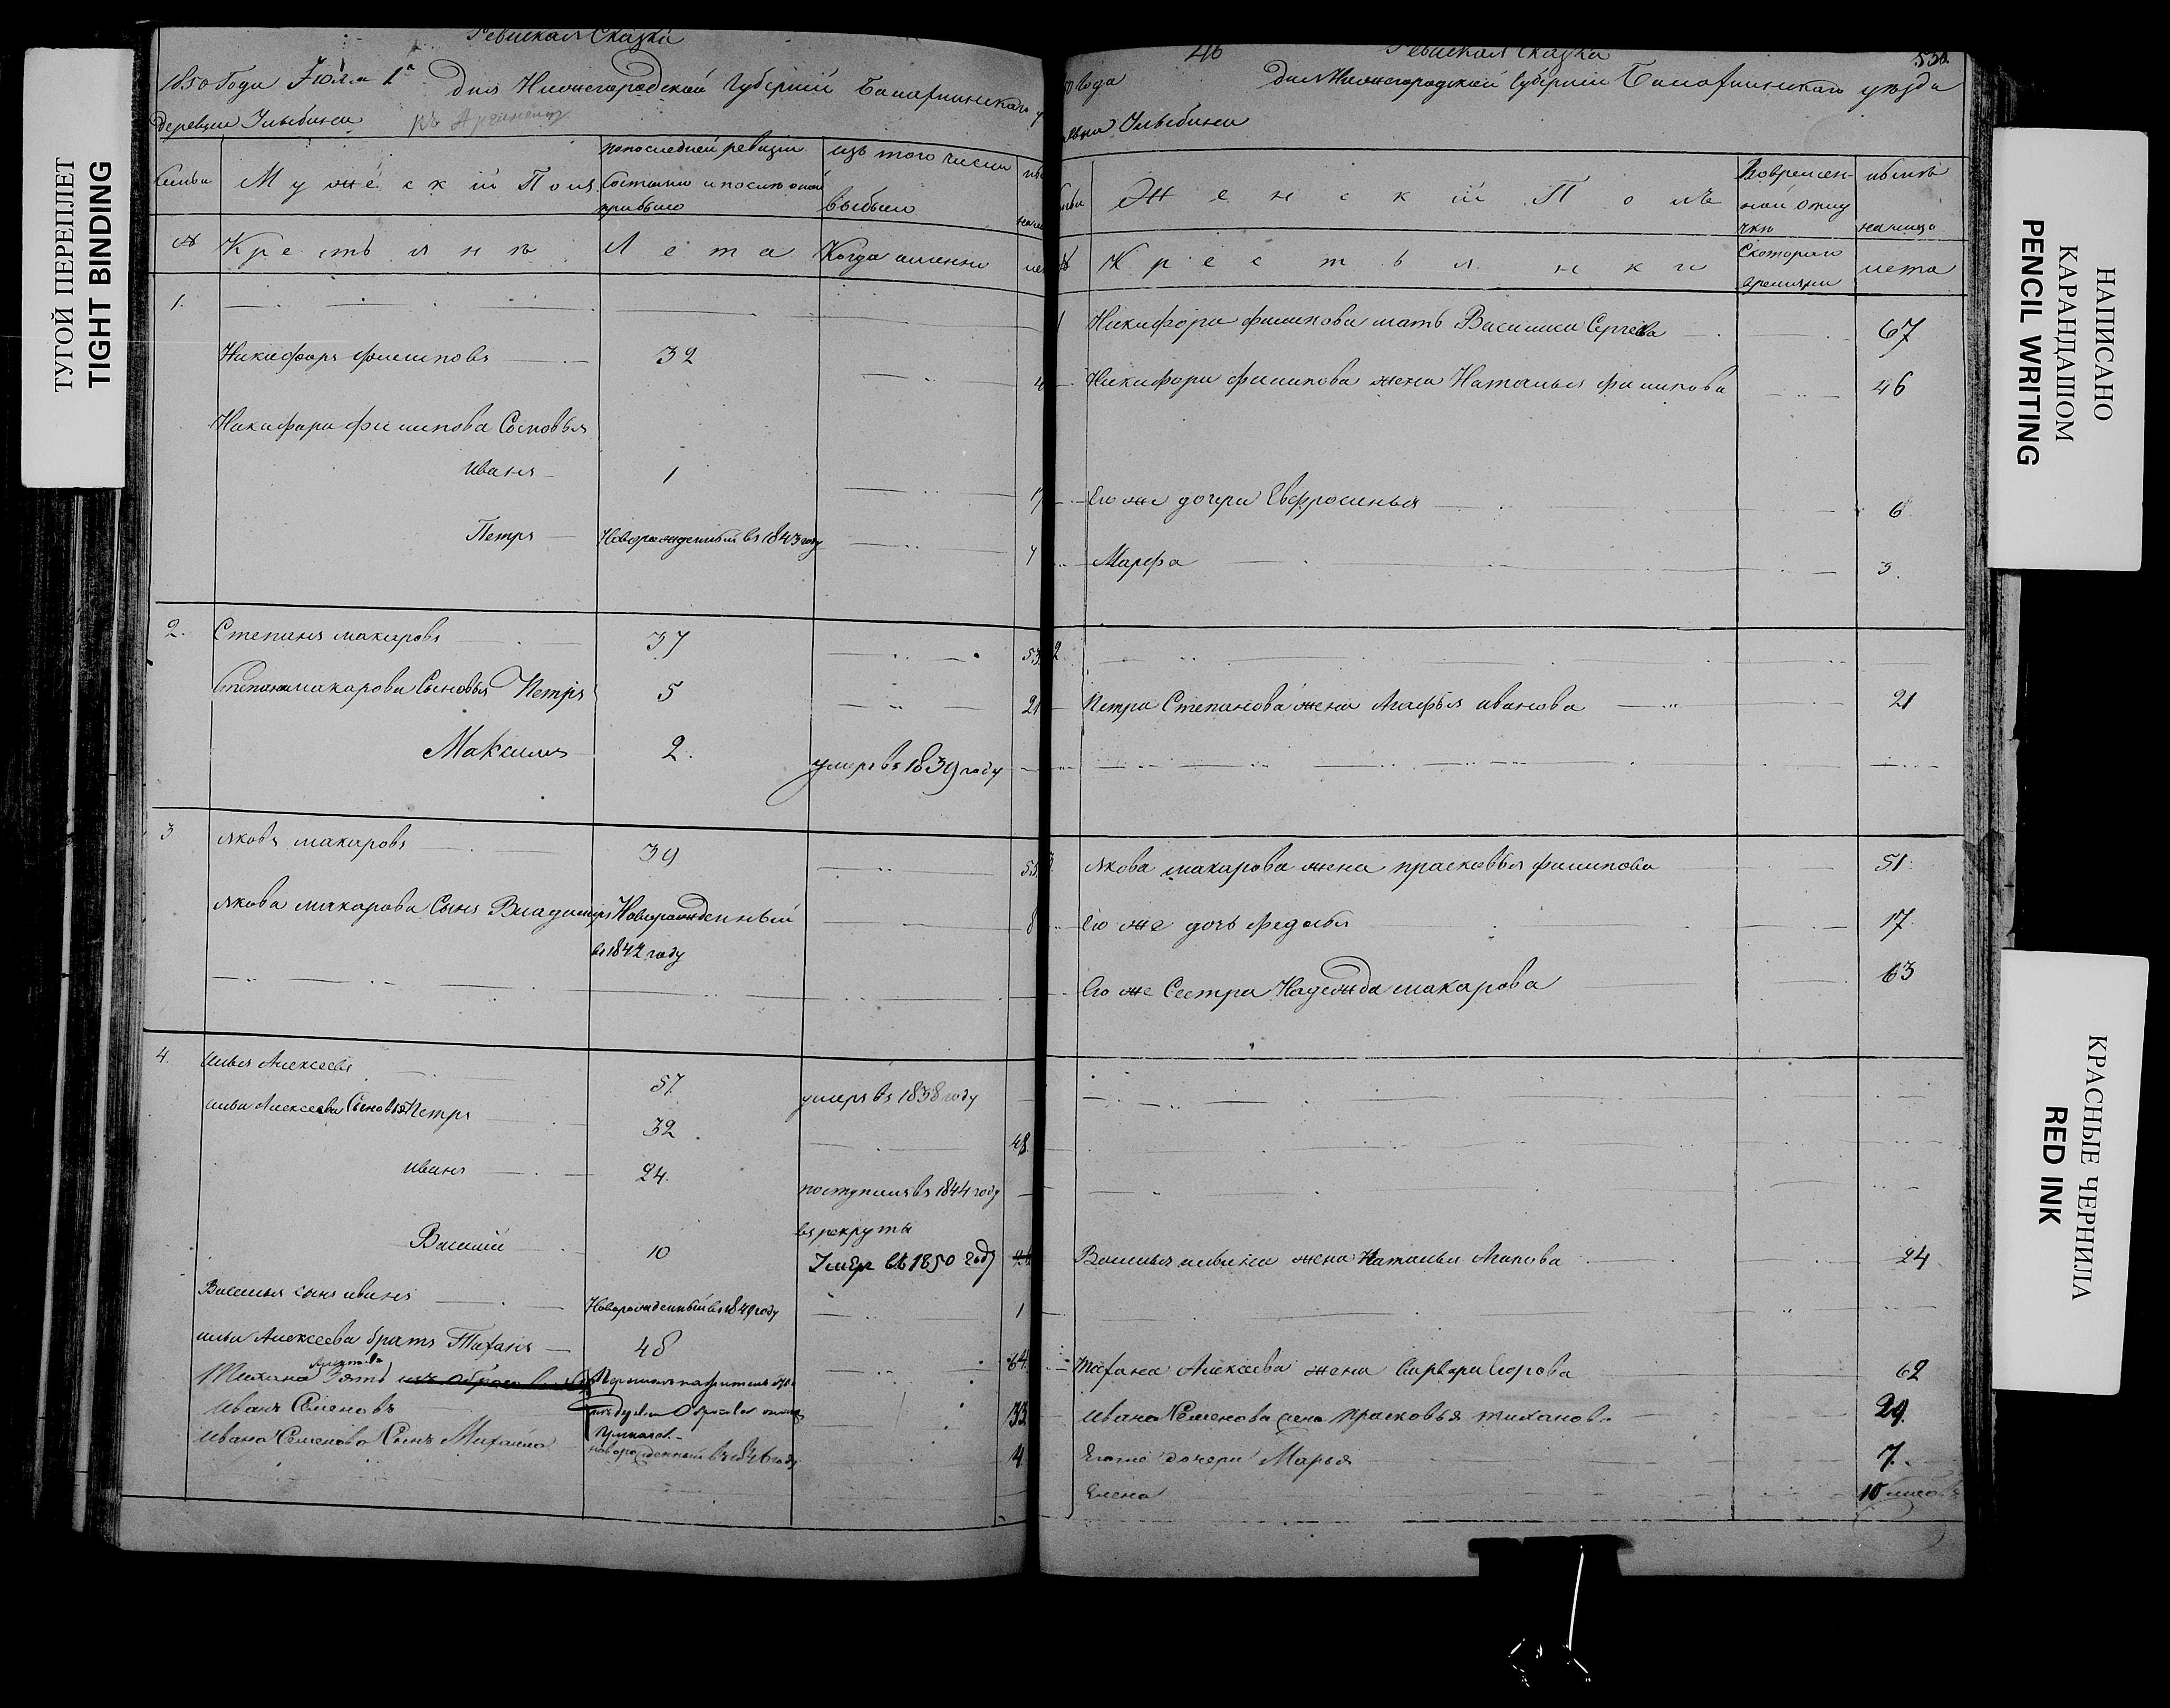 ТУГОЙ ПЕРЕПЛЕТ
TIGHT BINDING
Ревиская Сказка
1850 Года Июля 1го Дня Нижегородской Губернии Балахнинского
деревни Улыбина
Семьи
Мужеский Полъ
попоследней ревизии
Состояло и после оной
прибыло
изъ того числа
выбыло
№
Крестьянъ
Лета
Когда именно
1.
Никифоръ филиповъ 32
Никифора филипова Сыновья
иванъ 1
Петръ Новорожденный въ 1843 году 7
2. Степанъ макаровъ 37 53
Степана макарова Сыновья Петръ 5 21
Максимъ 2. умеръ въ 1839 году
3 яковъ макаровъ 39 55
якова макарова Сынъ Владимиръ Новорожденный 8
въ 1842 году
4. илья Алексеевъ 57 умеръ въ 1838 году
ильи Алексеева Сыновья Петръ 32 48
иванъ 24 поступилъ въ 1844 году
въ рекруты
Василий 10 Умеръ въ 1850 году
Василья сынъ иванъ Новорожденный въ 1849 году 1
ильи Алексеева братъ Тиханъ 48 64
Тихана Алексеева Зять
Иванъ Семеновъ 33
Ивана Семенова Сынъ Михайла новорожденный въ 1846 году 4
46
Ревиская Сказка
550.
Года Дня Нижегородской Губернии Балахнинскаго уезда
Улыбина
Женский Полъ
Вовремен-
ной отлу
чки
налицо
№
Крестьянки
Скотораго
времяни
лета
1 Никифора филипова мать Василиса Сергеева 67
Никифора филипова жена Наталья филипова 46
Его же дочери Евфросинья 6
Марфа 3.
2
Петра Степанова жена Агафья иванова 21
3. якова макарова жена прасковья филипова 51
Его же дочь Федосья 17
Его же Сестра Надежда макарова 63
Василья ильина жена Наталья 24
Тихана Алексеева жена варвара 62
Ивана Семенова жена Прасковья тиханова 29.
Его же дочери Марья 7.
Елена 10
НАПИСАНО
КАРАНДАШОМ
PENCIL WRITING
КРАСНЫЕ ЧЕРНИЛА
RED INK